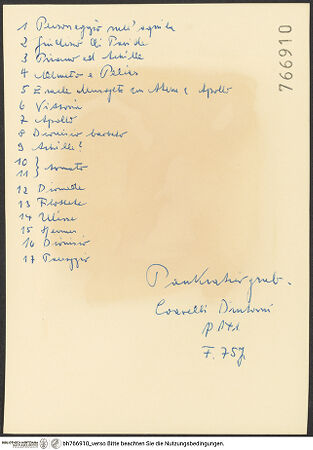 1 Personaggio sull' aquila
2 Giudizio di Paride
3 Priamo ed Achille
4 Admeto e Pelias
5 Eracle Musagete con Atena e Apollo
6 Vittoria
7 Apollo
8 Dioniso barbato
9 Achille?
10 }
11 } 
12 Diomede
13 Filottete
14 Ulisse
15 Hermes
16 Dioniso
17 Paesaggio
766910
Pankratiergrab.
Coarelli Dintorni
p 141
F. 757
bh766910_verso Bitte beachten Sie die Nutzungsbedingungen.